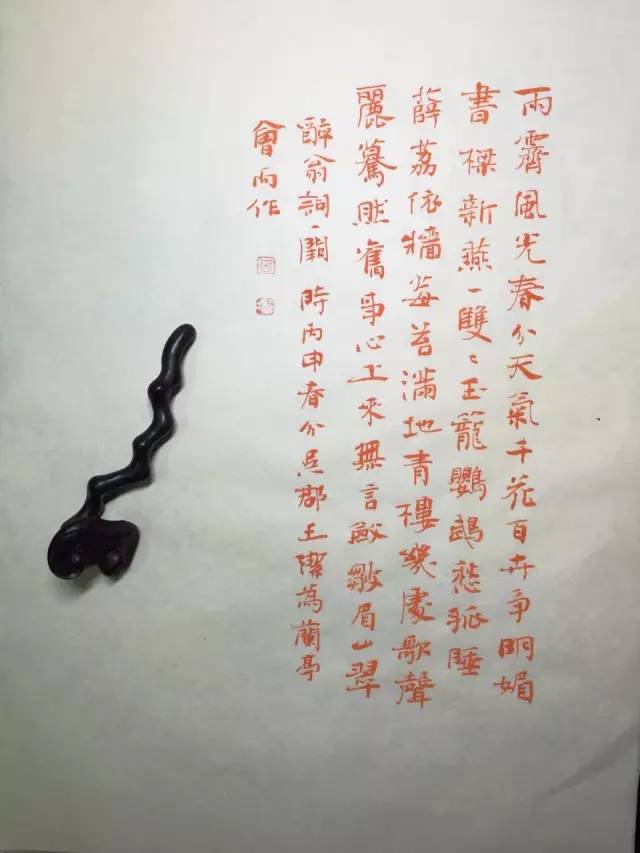 雨霽風光春分天氣千花百卉爭明媚
畫樑新燕一雙〻玉籠鸚鵡愁孤睡
薜荔依牆莓苔滿地青樓幾處歌聲
麗驀然舊事心上來無言斂皺眉山翠
醉翁詞一闋 時丙申春分吳郡王潔為蘭亭
會而作